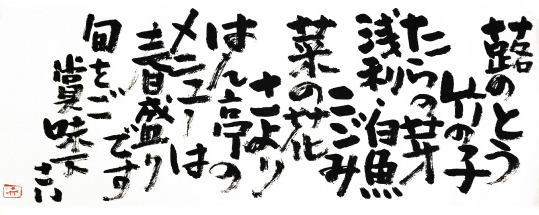 蕗のとう
竹の子
たらの芽
浅利・白魚
こごみ
菜の花
さより
はん亭の
メニューは
春盛り
です
旬をご
賞味下
さい